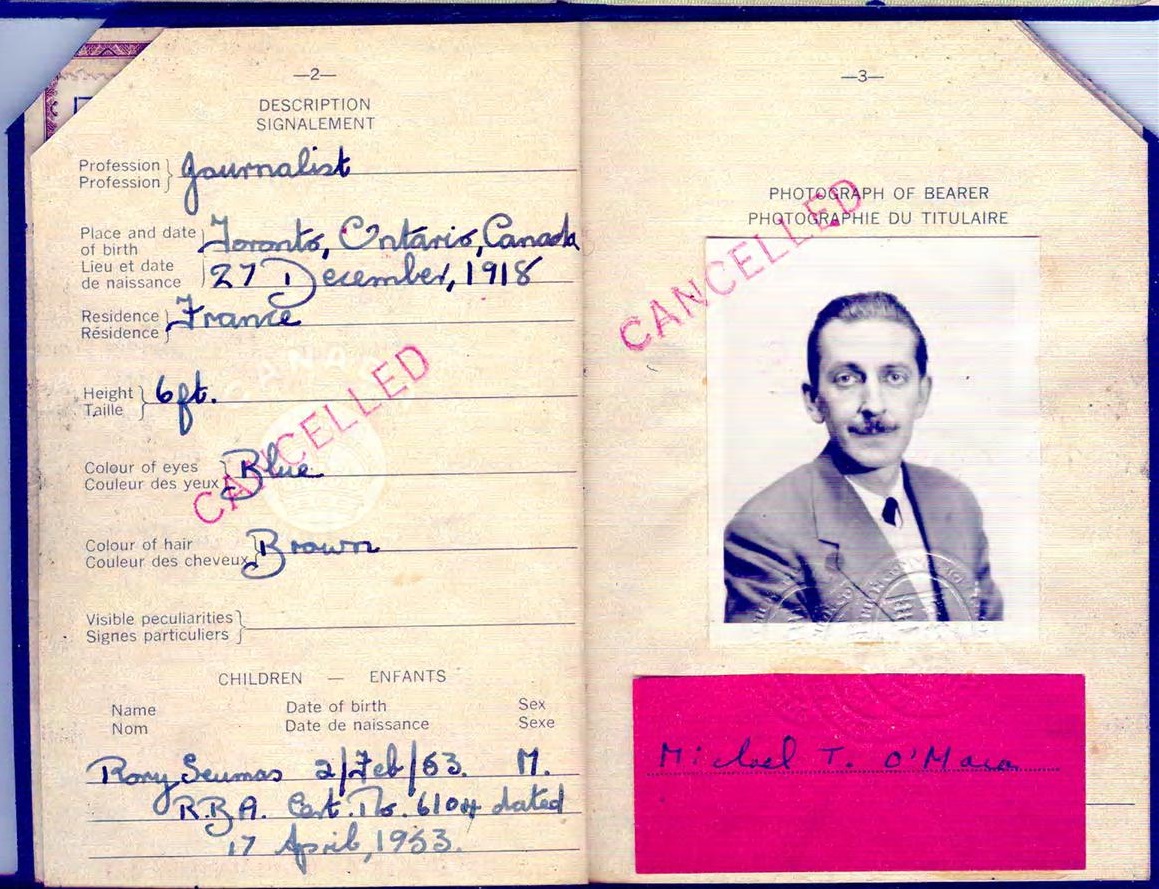 —2—
DESCRIPTION
SIGNALEMENT
Profession
Profession
Journalist
Place and date
of birth
Lieu et date
de naissance
Toronto, Ontario, Canada
27 December, 1918
Residence
Résidence
France
Height
Taille
6ft.
Colour of eyes
Couleur des yeux
Blue
Colour of hair
Couleur des cheveux
Brown
Visible peculiarities
Signes particuliers
CANADA
CANCELLED
CHILDREN — ENFANTS
Name Date of birth Sex
Nom Date de naissance Sexe
Rory Seumas 2/Feb/53. M.
R.B.A. Cert. No. 6104 dated
17 April, 1953.
—3—
PHOTOGRAPH OF BEARER
PHOTOGRAPHIE DU TITULAIRE
CANCELLED
Michael T. O'Mara